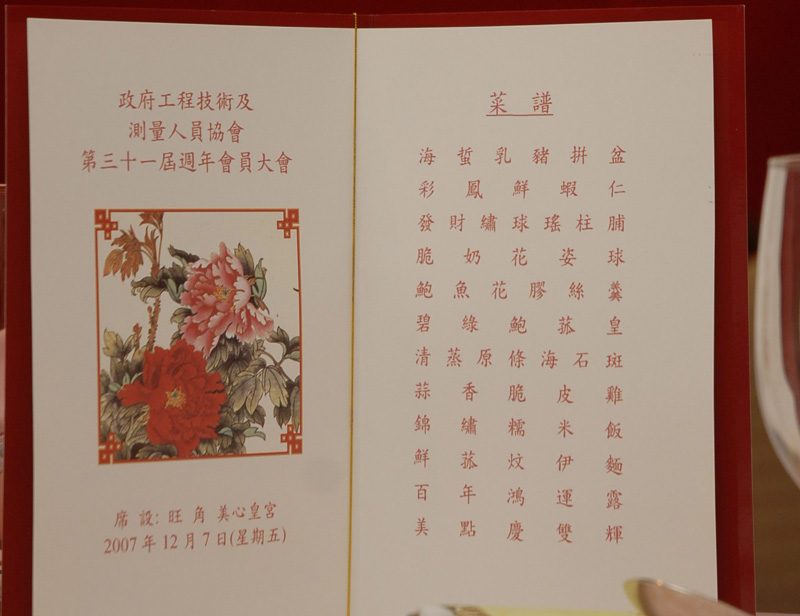 政府工程技術及
測量人員協會
第三十一屆週年會員大會
席設: 旺角 美心皇宮
2007年12月7日(星期五)
菜譜
海蜇乳豬拼盆
彩鳳鮮蝦仁
發財繡球瑤柱脯
脆奶花姿球
鮑魚花膠絲羹
碧綠鮑菰皇
清蒸原條海石斑
蒜香脆皮雞
錦繡糯米飯
鮮菰炆伊麵
百年鴻運露
美點慶雙輝